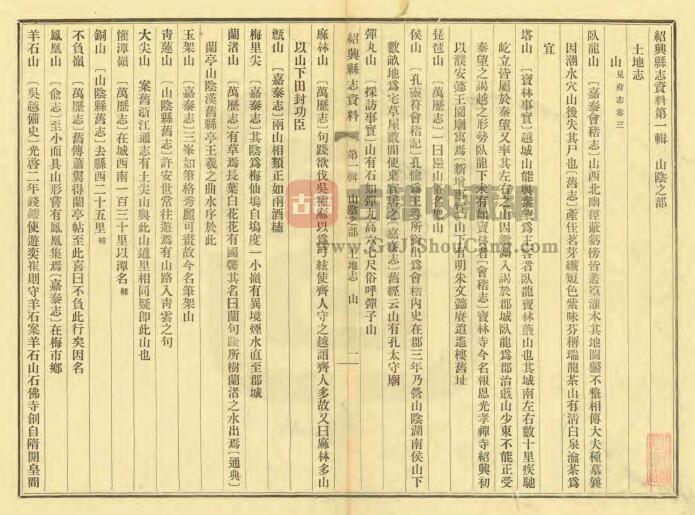 紹興縣志資料第一輯　山陰之部
土地志
山 見府志卷三
臥龍山　〔嘉泰會稽志〕山西北幽徑蔽虧傍皆叢篁灌木其地闃不整相傳大夫種墓
因潮水穴山後失其尸也〔舊志〕產佳茗芽纖短色紫味芬稱瑞龍茶山有清白泉瀹茶爲
宜
塔山　〔寶林事實〕越城山能與秦望爲主客者臥龍寶林蕺山也其城南左右數十里疾馳
屹立皆屬於秦望又率其左右之
秦望之謁越之形勢臥龍下來有如寶林者〔會稽志〕寶林寺今名報恩光孝禪寺紹興初
以濮安懿王園廟寓焉
琵琶山　〔萬歷志〕一曰
侯山　〔孔靈符會稽記〕孔愉爲會稽內史在郡三年乃營山陰湖南侯山下
數畝地爲宅草屋數間便棄官居之〔嘉泰志〕舊經云山有孔太守廟
彈丸山　〔採訪事實〕山有石如彈丸高六七尺俗呼彈子山
紹興縣志資料　第一輯　山陰之部　土地志　山　一
麻林山　〔萬歷志〕句踐欲伐吳種麻以爲弓絃使齊人守之越謂齊人多故又曰麻林多山
以山下田封功臣
甑山　〔嘉泰志〕兩山相類正如兩酒榼
梅里尖　〔嘉泰志〕其陰爲梅仙塢自塢度一小嶺有異境煙水直至郡城
蘭渚山　〔萬歷志〕有草焉長葉白花花有國馨其名曰蘭句踐所樹蘭渚之水出焉〔通典〕
蘭亭山陰漢舊縣亭王羲之曲水序於此
玉架山　〔嘉泰志〕三峯如筆格秀麗可畫故今名筆架山
青蓮山　〔山陰縣舊志〕許安世常往遊焉有山路入青雲之句
大尖山　案舊浙江通志有土尖山與此山道里相同疑卽此山也
惟潭嶺　〔萬歷志〕在城西南一百三十里以潭名 補
銅山　〔山陰縣舊志〕去縣西二十五里 補
不負嶺　〔萬歷志〕舊傳蕭翼得蘭亭帖至此喜曰不負此行矣因名
鳳凰山　〔兪志〕至小而具山形嘗有鳳凰集焉〔嘉泰志〕在梅市鄉
羊石山　〔吳越備史〕光啓二年錢鏐使遊奕崔則守羊石案羊石山石佛寺創自隋開皇間
古籍收藏網
www.GuJiShouCang.Com